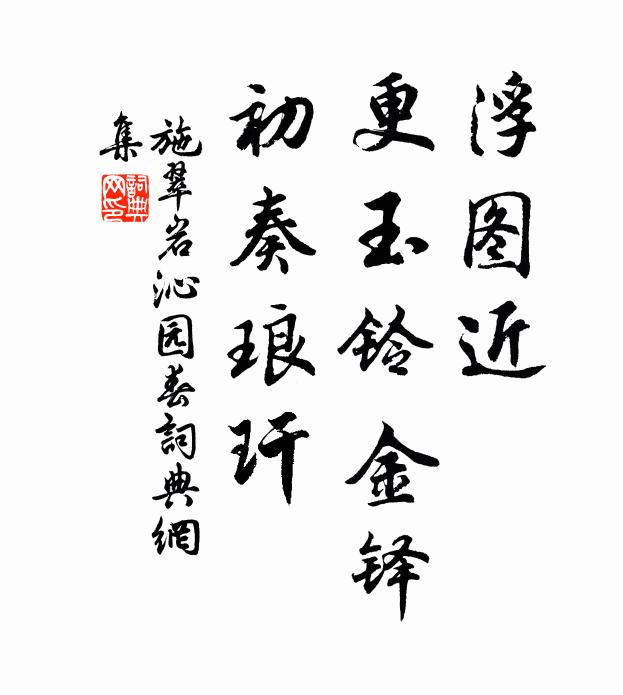 浮图近
更玉铃金铎
初奏琅玕
施翠岩沁园春詞典網
集
詞典
网印